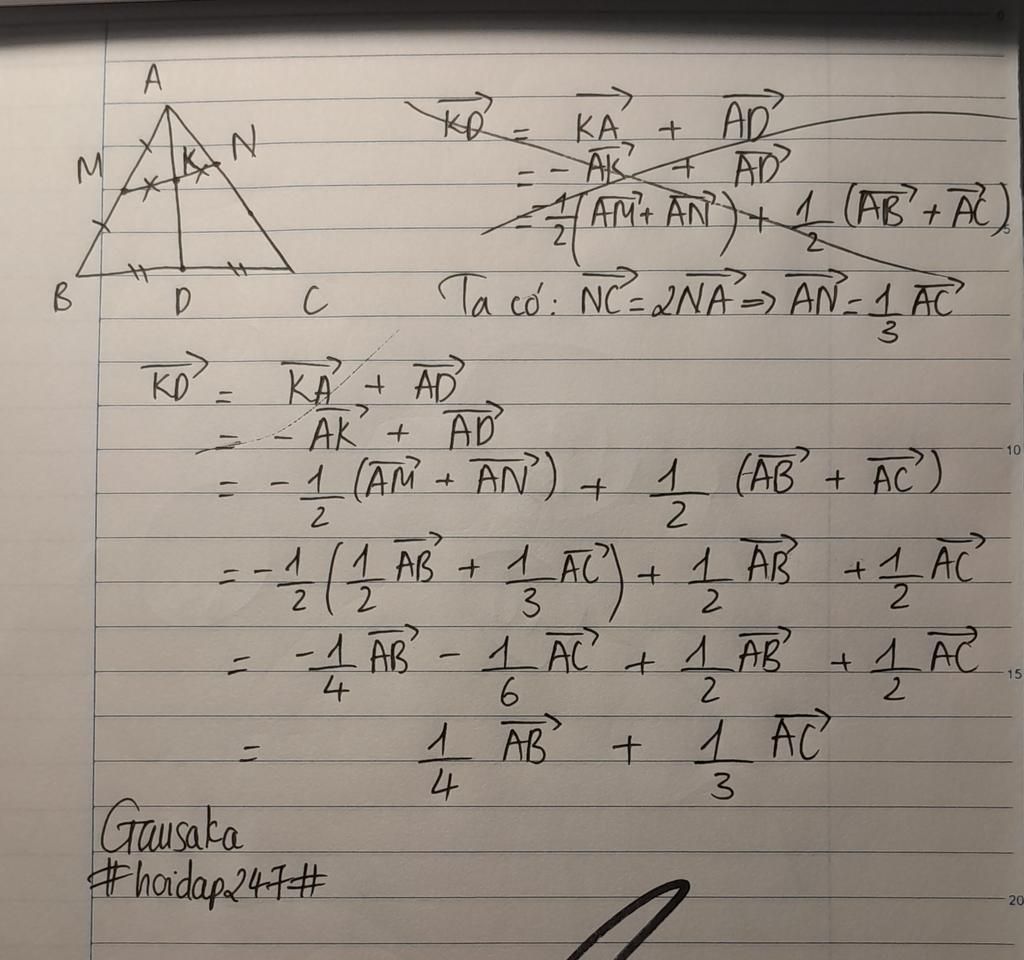 A
M
K
N
B
D
C
$\overrightarrow{KD} = \overrightarrow{KA} + \overrightarrow{AD}$
$= -\overrightarrow{AK} + \overrightarrow{AD}$
$= \frac{-1}{2}(\overrightarrow{AM} + \overrightarrow{AN}) + \frac{1}{2}(\overrightarrow{AB} + \overrightarrow{AC})$
Ta có: $\overrightarrow{NC} = 2\overrightarrow{NA} \Rightarrow \overrightarrow{AN} = \frac{1}{3}\overrightarrow{AC}$
$\overrightarrow{KD} = \overrightarrow{KA} + \overrightarrow{AD}$
$= -\overrightarrow{AK} + \overrightarrow{AD}$
$= -\frac{1}{2}(\overrightarrow{AM} + \overrightarrow{AN}) + \frac{1}{2}(\overrightarrow{AB} + \overrightarrow{AC})$
$= -\frac{1}{2}(\frac{1}{2}\overrightarrow{AB} + \frac{1}{3}\overrightarrow{AC}) + \frac{1}{2}\overrightarrow{AB} + \frac{1}{2}\overrightarrow{AC}$
$= \frac{-1}{4}\overrightarrow{AB} - \frac{1}{6}\overrightarrow{AC} + \frac{1}{2}\overrightarrow{AB} + \frac{1}{2}\overrightarrow{AC}$
$= \frac{1}{4}\overrightarrow{AB} + \frac{1}{3}\overrightarrow{AC}$
Gausaka
#hoidap247#
0
5
10
15
20